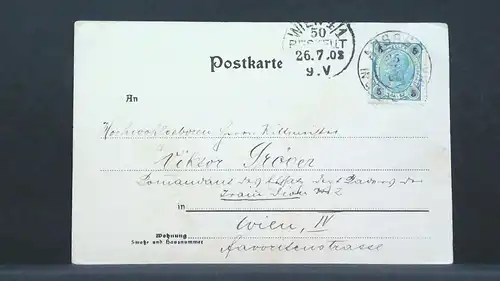 WIEN 4/1
50
BESTELLT
26.7.03
9.V
Postkarte
5 5
5 5
An
Hochwohlgeboren Herrn Rittmeister
Viktor Gröver
Comandant des
Train Divis. No 2
in
Wien, IV
Wohnung
Straße und Hausnummer
Favoritenstrasse